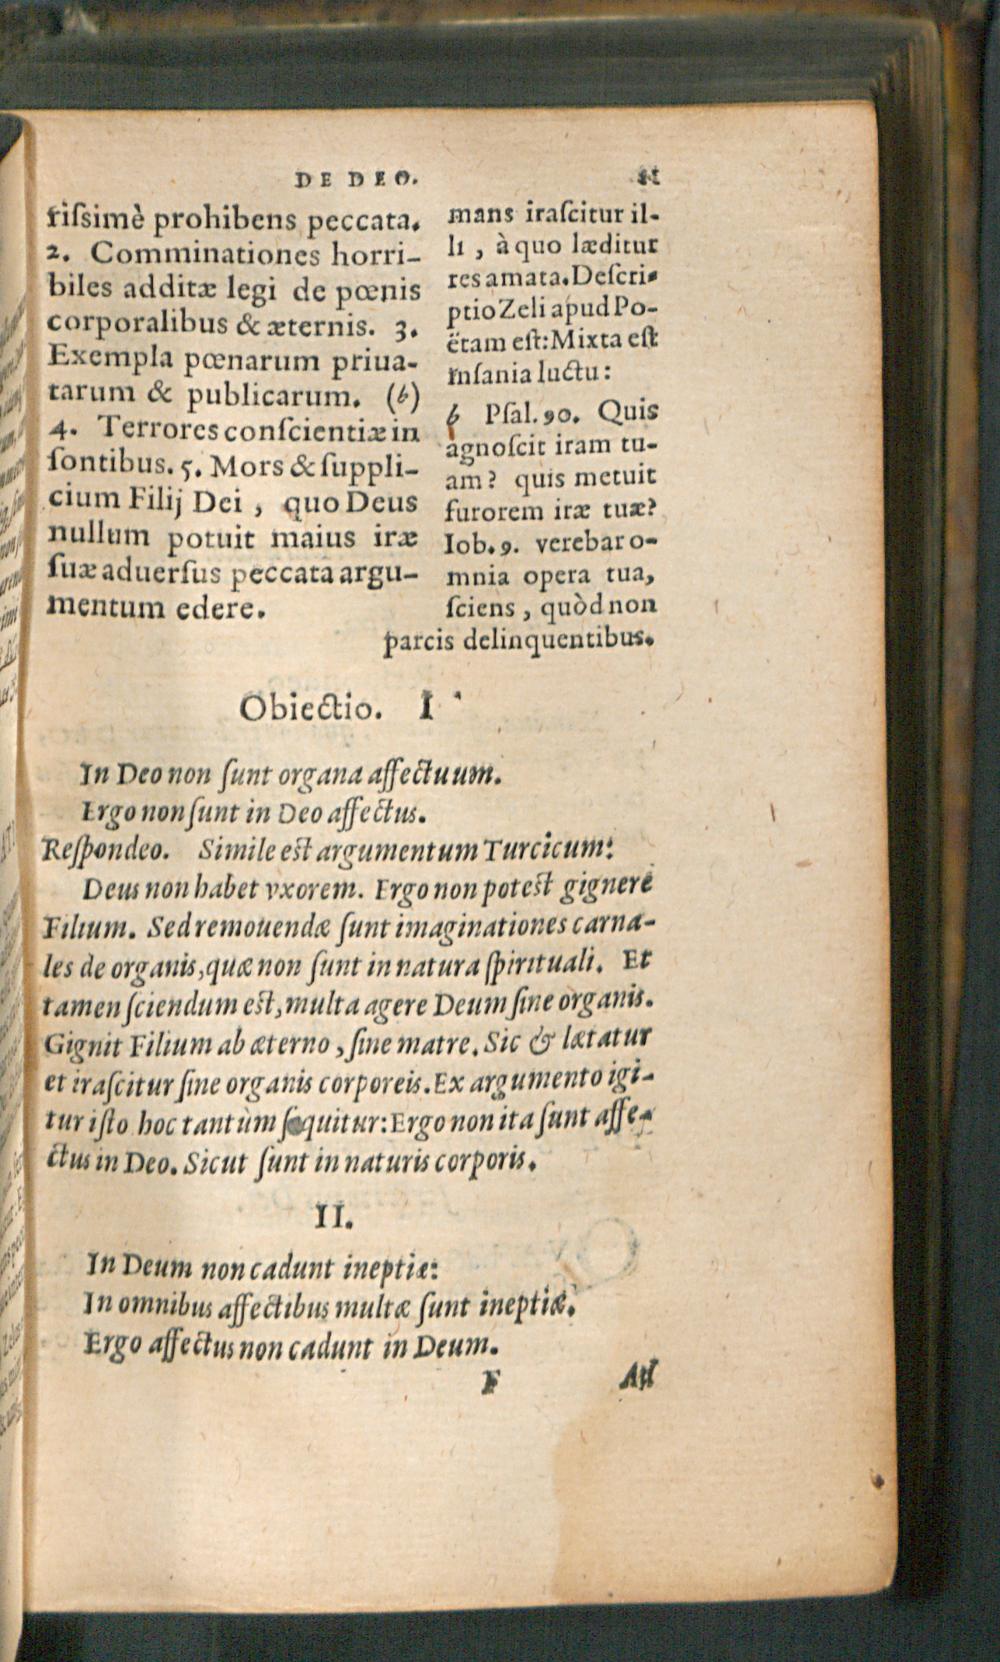 DE DEO.
tissimè prohibens peccata.
2. Comminationes horri-
biles additæ legi de pœnis
corporalibus & æternis. 3.
Exempla pœnarum priua-
tarum & publicarum. (b)
4. Terrores conscientiæ in
sontibus. 5. Mors & suppli-
cium Filij Dei, quo Deus
nullum potuit maius iræ
suæ aduersus peccata argu-
mentum edere.
mans irascitur il-
li, à quo læditur
res amata. Descri-
ptio Zeli apud Po-
ëtam est: Mixta est
insania luctu:
b Psal. 90. Quis
agnoscit iram tu-
am? quis metuit
furorem iræ tuæ?
Iob. 9. verebar o-
mnia opera tua,
sciens, quòd non
parcis delinquentibus.
Obiectio. I
In Deo non sunt organa affectuum.
Ergo non sunt in Deo affectus.
Respondeo. Simile est argumentum Turcicum:
Deus non habet vxorem. Ergo non potest gignere
Filium. Sed remouendæ sunt imaginationes carna-
les de organis, quæ non sunt in natura spirituali. Et
tamen sciendum est, multa agere Deum sine organis.
Gignit Filium ab æterno, sine matre. Sic & lætatur
et irascitur sine organis corporeis. Ex argumento igi-
tur isto hoc tantùm sequitur: Ergo non ita sunt affe-
ctus in Deo. Sicut sunt in naturis corporis.
II.
In Deum non cadunt ineptiæ:
In omnibus affectibus multæ sunt ineptiæ.
Ergo affectus non cadunt in Deum.
F